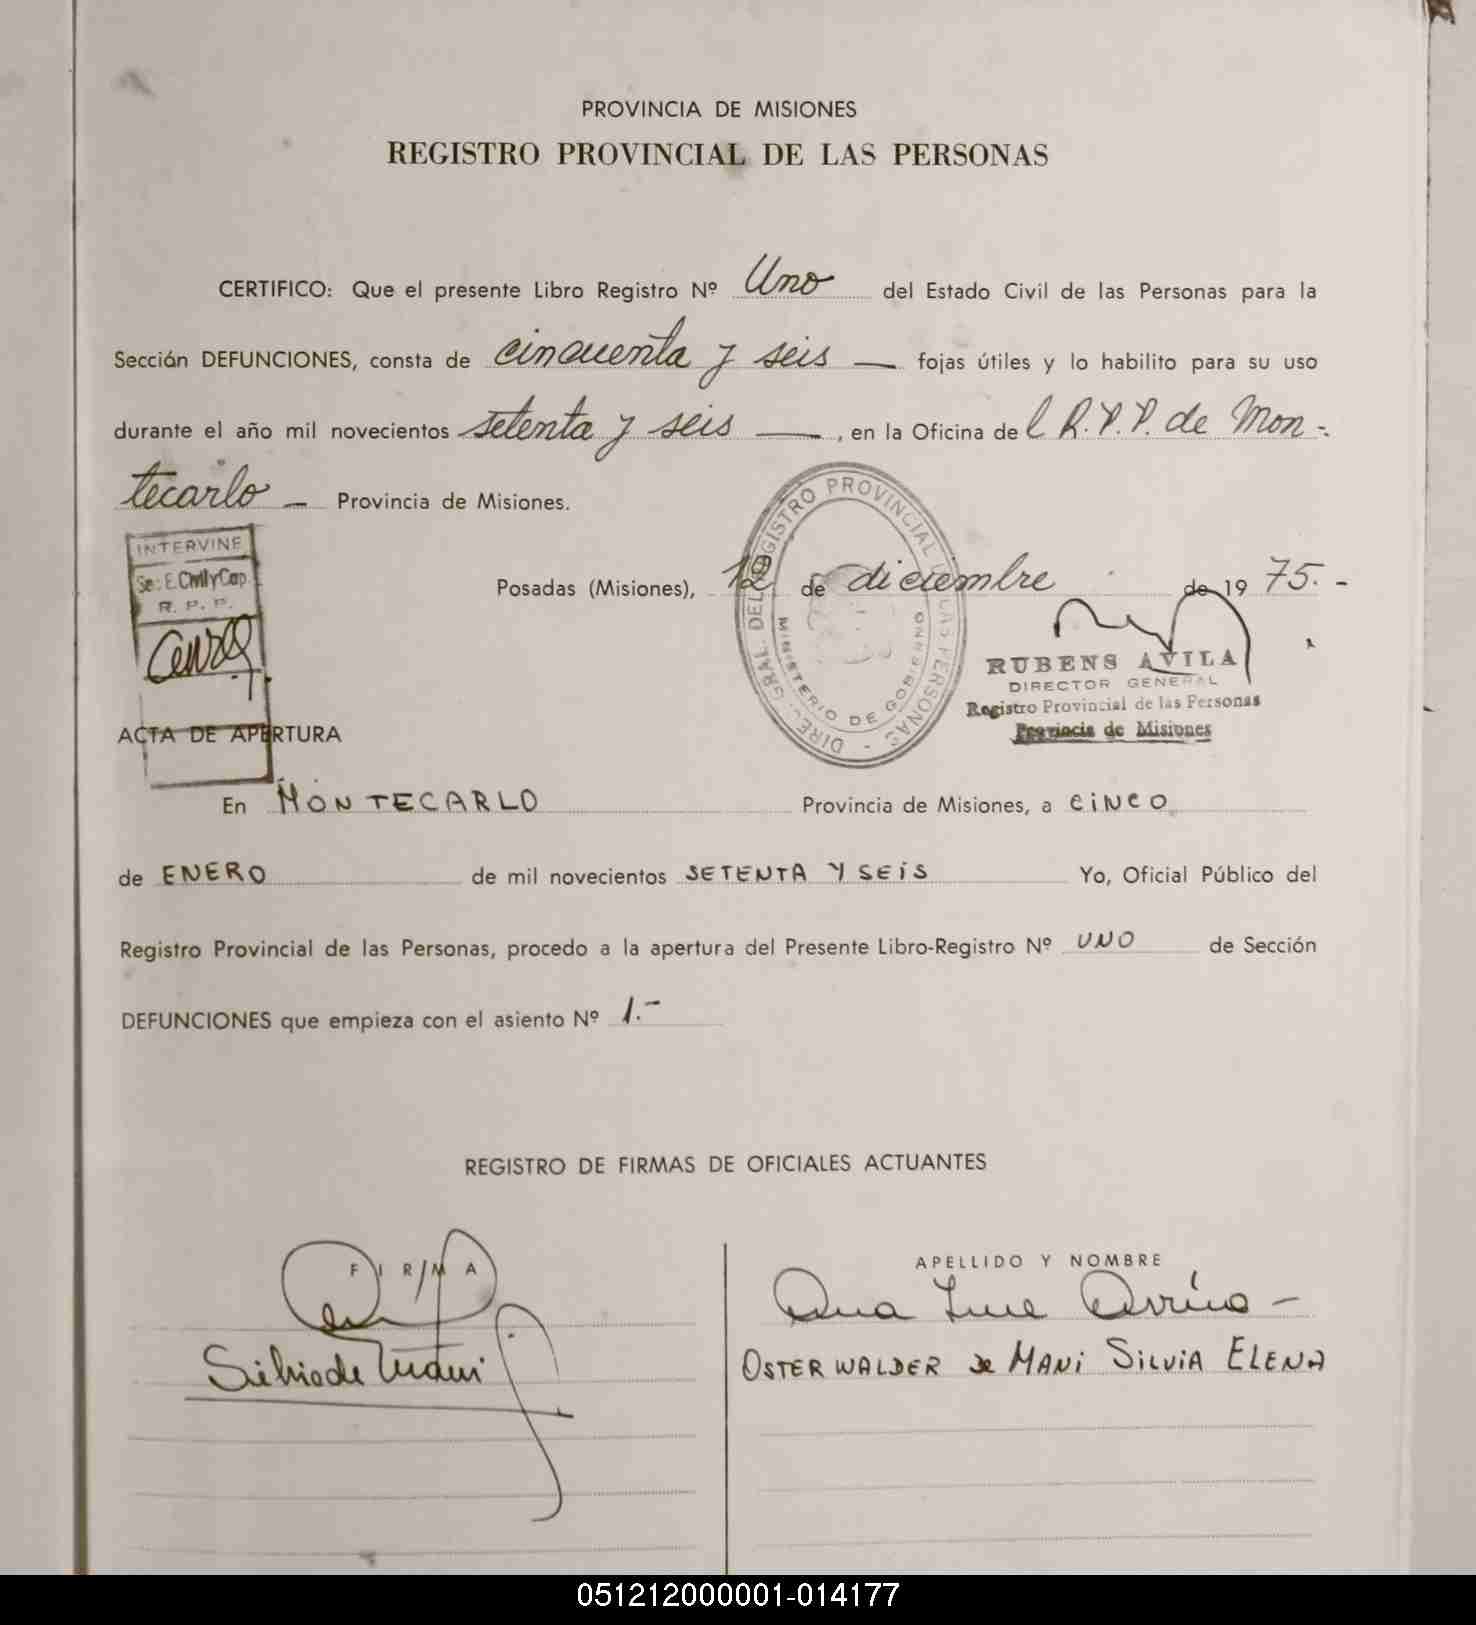 PROVINCIA DE MISIONES
REGISTRO PROVINCIAL DE LAS PERSONAS
CERTIFICO: Que el presente Libro Registro Nº Uno del Estado Civil de las Personas para la
Sección DEFUNCIONES, consta de cincuenta y seis — fojas útiles y lo habilito para su uso
durante el año mil novecientos setenta y seis —, en la Oficina de l R.P.P. de Mon-
tecarlo — Provincia de Misiones.
INTERVINE
Sec. E. Civil y Cap.
R. P. P.
Posadas (Misiones), 12 de diciembre de 1975.-
DIREC. GRAL. DEL REGISTRO PROVINCIAL DE LAS PERSONAS -
MINISTERIO DE GOBIERNO
RUBENS AVILA
DIRECTOR GENERAL
Registro Provincial de las Personas
Provincia de Misiones
ACTA DE APERTURA
En MONTECARLO Provincia de Misiones, a CINCO
de ENERO de mil novecientos SETENTA Y SEIS Yo, Oficial Público del
Registro Provincial de las Personas, procedo a la apertura del Presente Libro-Registro Nº UNO de Sección
DEFUNCIONES que empieza con el asiento Nº 1.-
REGISTRO DE FIRMAS DE OFICIALES ACTUANTES
FIRMA
APELLIDO Y NOMBRE
Silvia de Mani
OSTERWALDER de MANI SILVIA ELENA
051212000001-014177